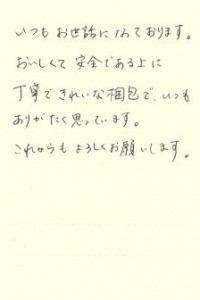 いつもお世話になっております。
おいしくて安全である上に
丁寧できれいな梱包で、いつも
ありがたく思っています。
これからもよろしくお願いします。